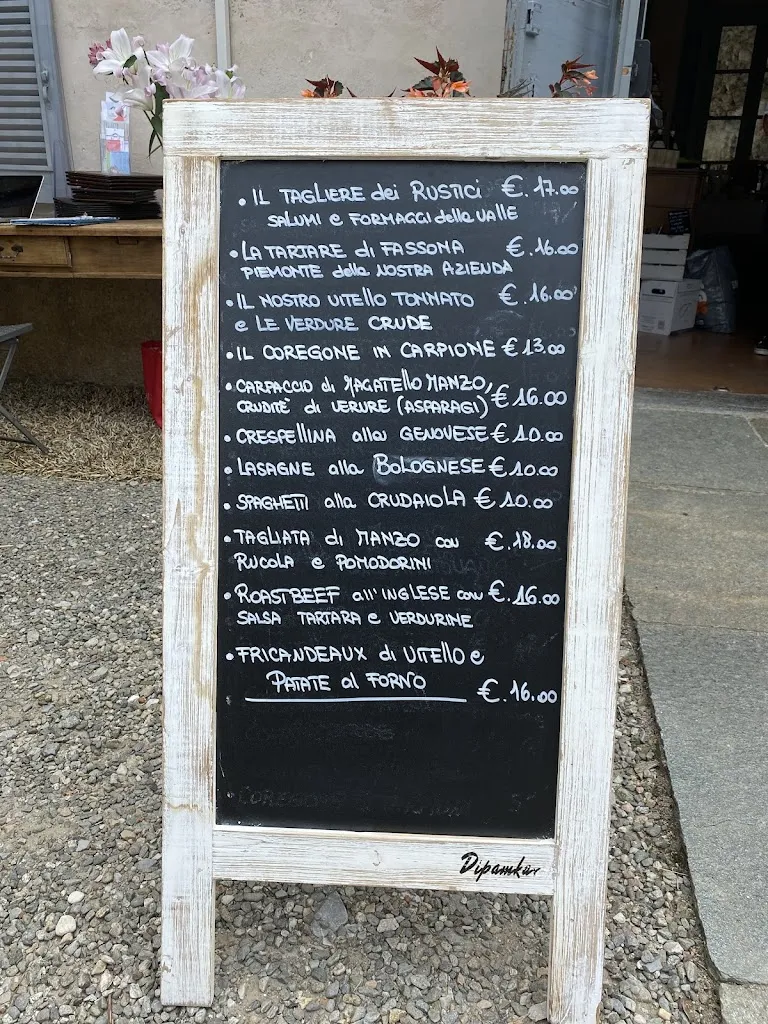 • IL TAGLIERE dei RUSTICI €. 17.00
SALUMI e FORMAGGI della VALLE
• LA TARTARE di FASSONA €. 16.00
PIEMONTE della NOSTRA AZIENDA
• IL NOSTRO VITELLO TONNATO €. 16.00
e LE VERDURE CRUDE
• IL COREGONE IN CARPIONE € 13.00
• CARPACCIO di MAGATELLO MANZO, € 16.00
CRUDITE' di VERURE (ASPARAGI)
• CRESPELLINA alla GENOVESE € 10.00
• LASAGNE alla BOLOGNESE € 10.00
• SPAGHETTI alla CRUDAIOLA € 10.00
• TAGLIATA di MANZO con €. 18.00
RUCOLA e POMODORINI
• ROASTBEEF all'INGLESE con €. 16.00
SALSA TARTARA e VERDURINE
• FRICANDEAUX di VITELLO e
PATATE al FORNO €. 16.00
Dipamkar